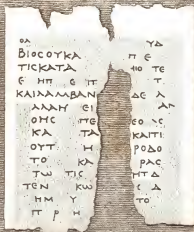 ΟΛ ΥΔ
ΒΙΟϹΟΥΚΑ Π Ε
ΤΙϹΚΑΤΑ ΤΕ
Ε ΗΠ Ε Π Τ
ΚΑΙΛΑΜΒΑΝ ΔΕ Α
ΑΛΛΗ ΕΙ ΑΝ
ΟΗϹ ΠΕ ΕΟ ΛϹ
ΚΑ ΤΑ ΚΑΙΤΙ
ΟΥΤ Η ΡΟΔΟ
ΤΟ ΚΑ ΡΑϹ
ΤΩ ΤΙϹ ΗΤ Δ
ΤΕΝ ΚΩ Ϲ Δ
ΗΜ Υ ΤΟ
Π Ρ Η